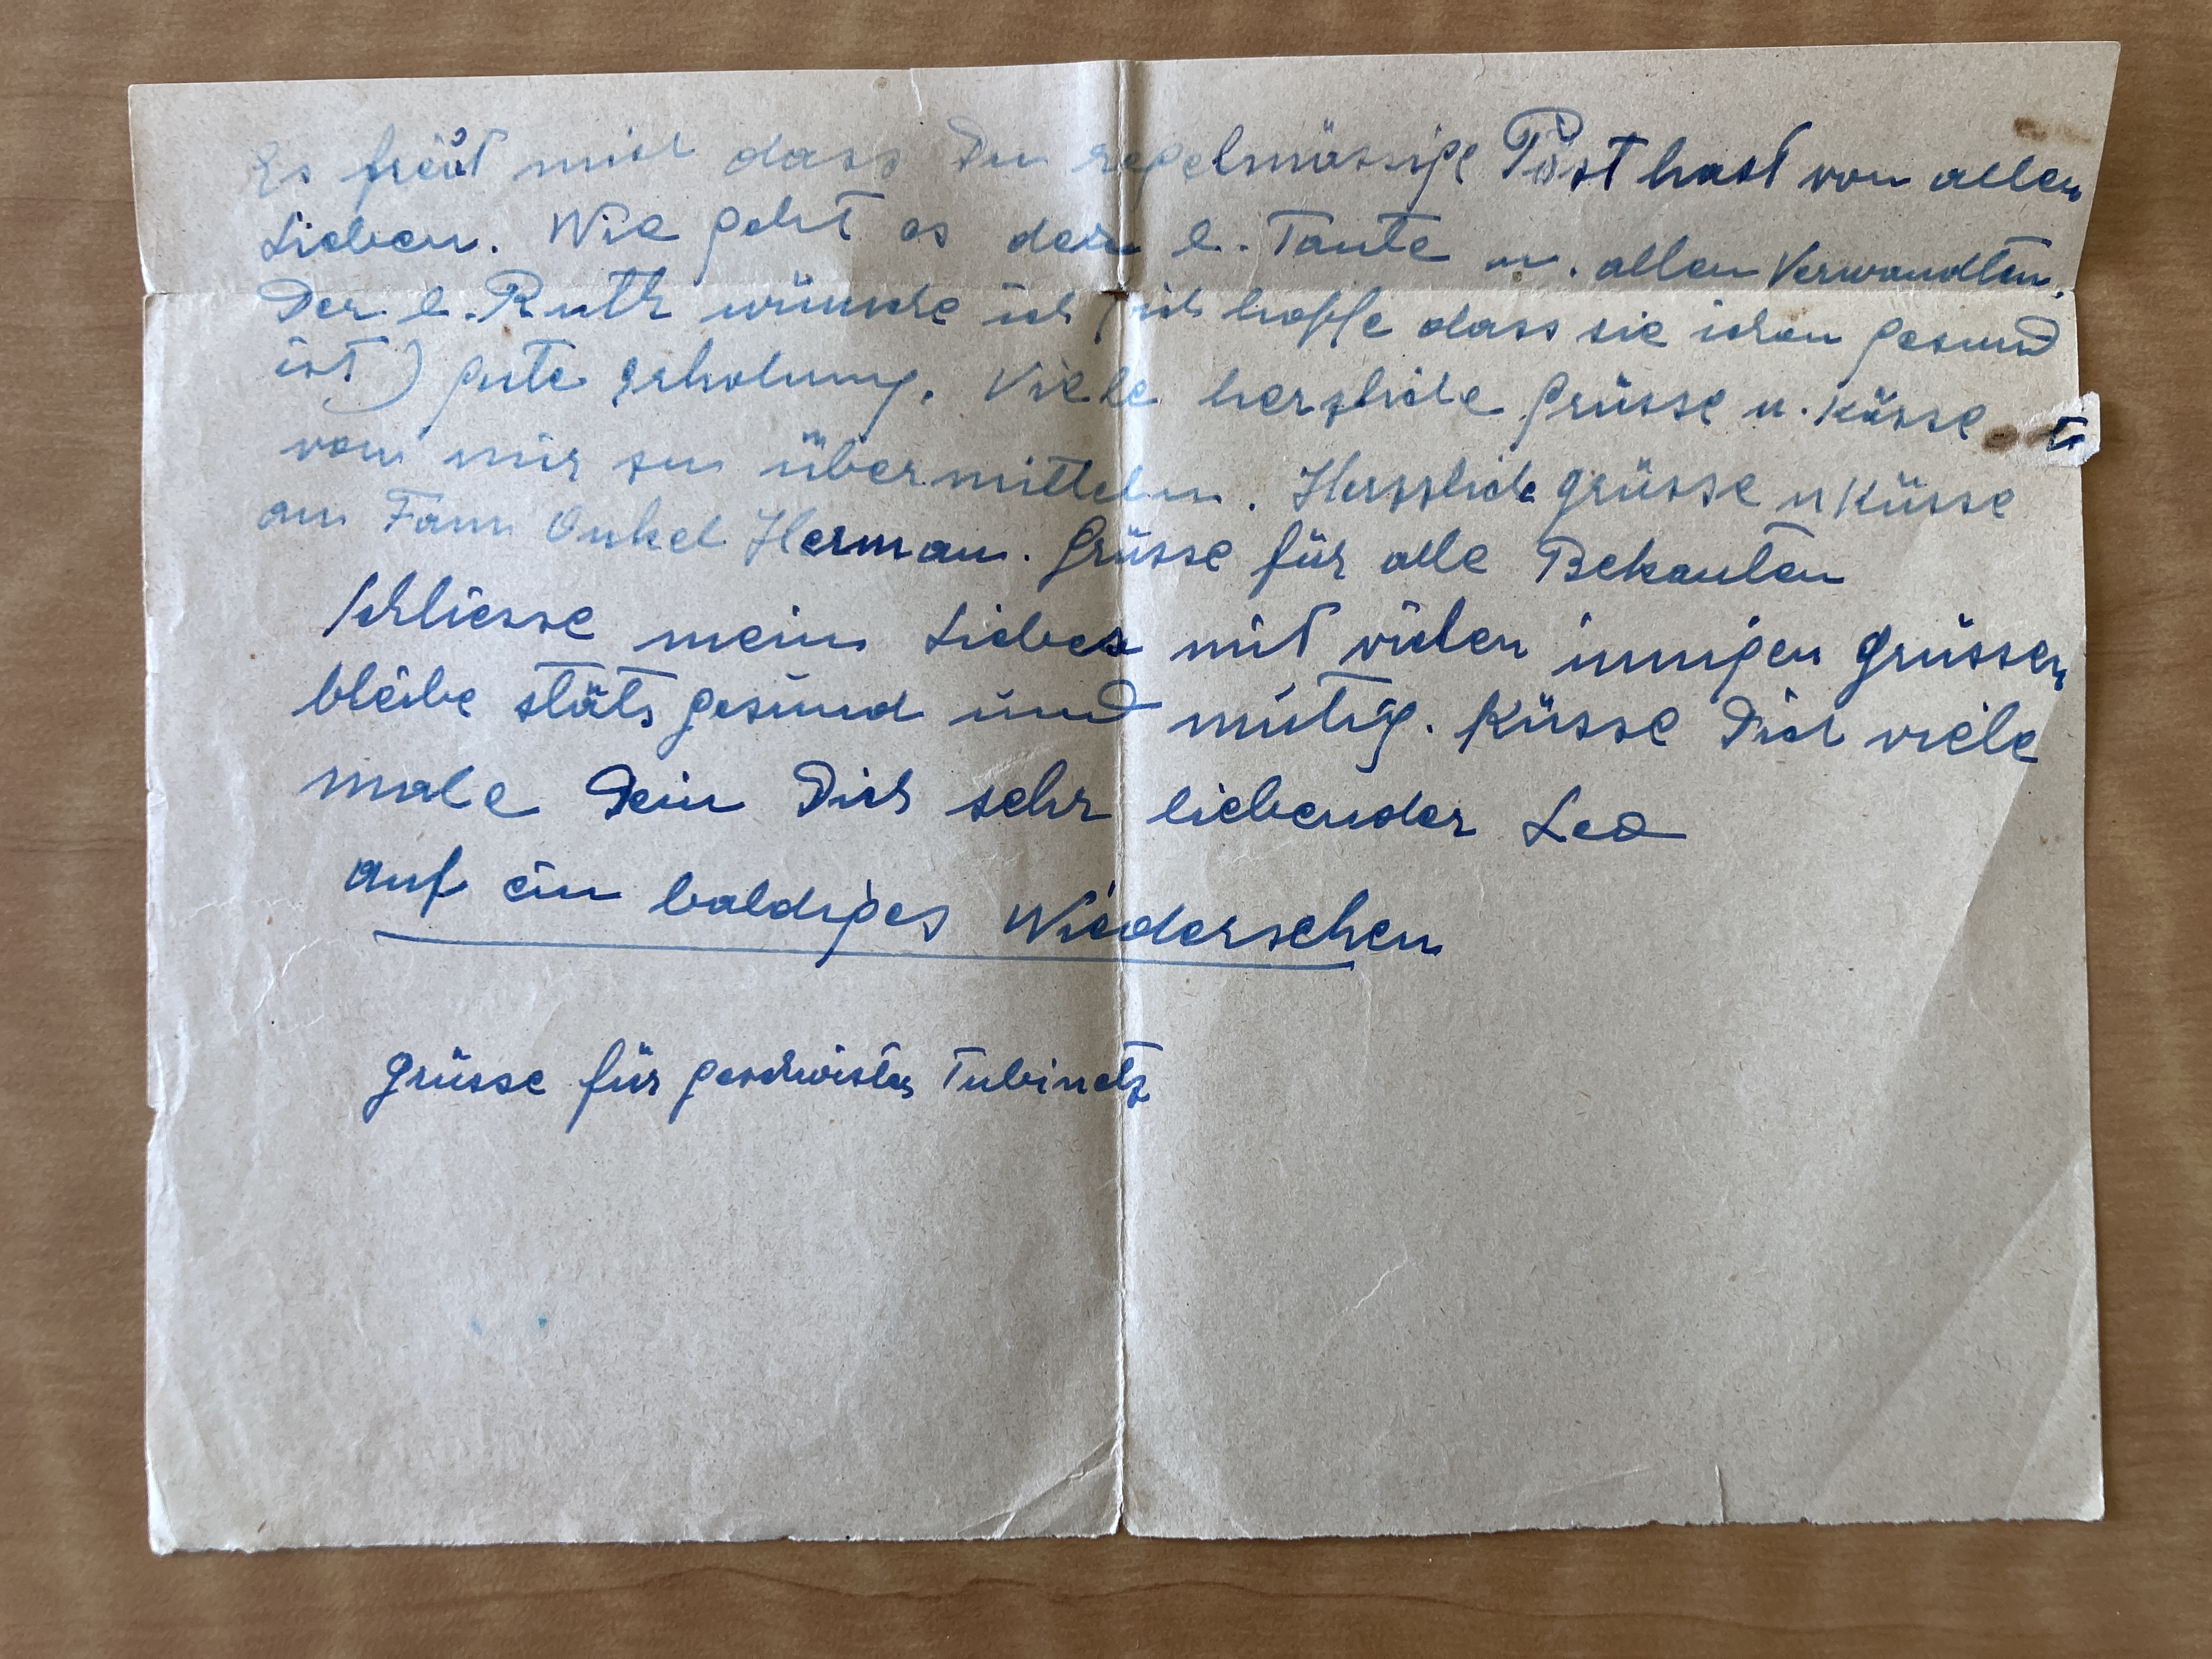 Es freut mich dass Du regelmässige Post hast von allen
Lieben. Wie geht es der l. Tante u. allen Verwandten.
Der l. Ruth wünsche ich (ich hoffe dass sie schon gesund
ist) gute Erholung. Viele herzliche Grüsse u. Küsse
von mir zu übermitteln. Herzliche Grüsse u Küsse
an Fam Onkel Herman. Grüsse für alle Bekanten
Schliesse mein Liebes mit vielen innigen Grüssen
bleibe stäts gesund und mutig. Küsse Dich viele
male Dein Dich sehr liebender Leo
auf ein baldiges Wiedersehen
Grüsse für Geschwister Tubinetz